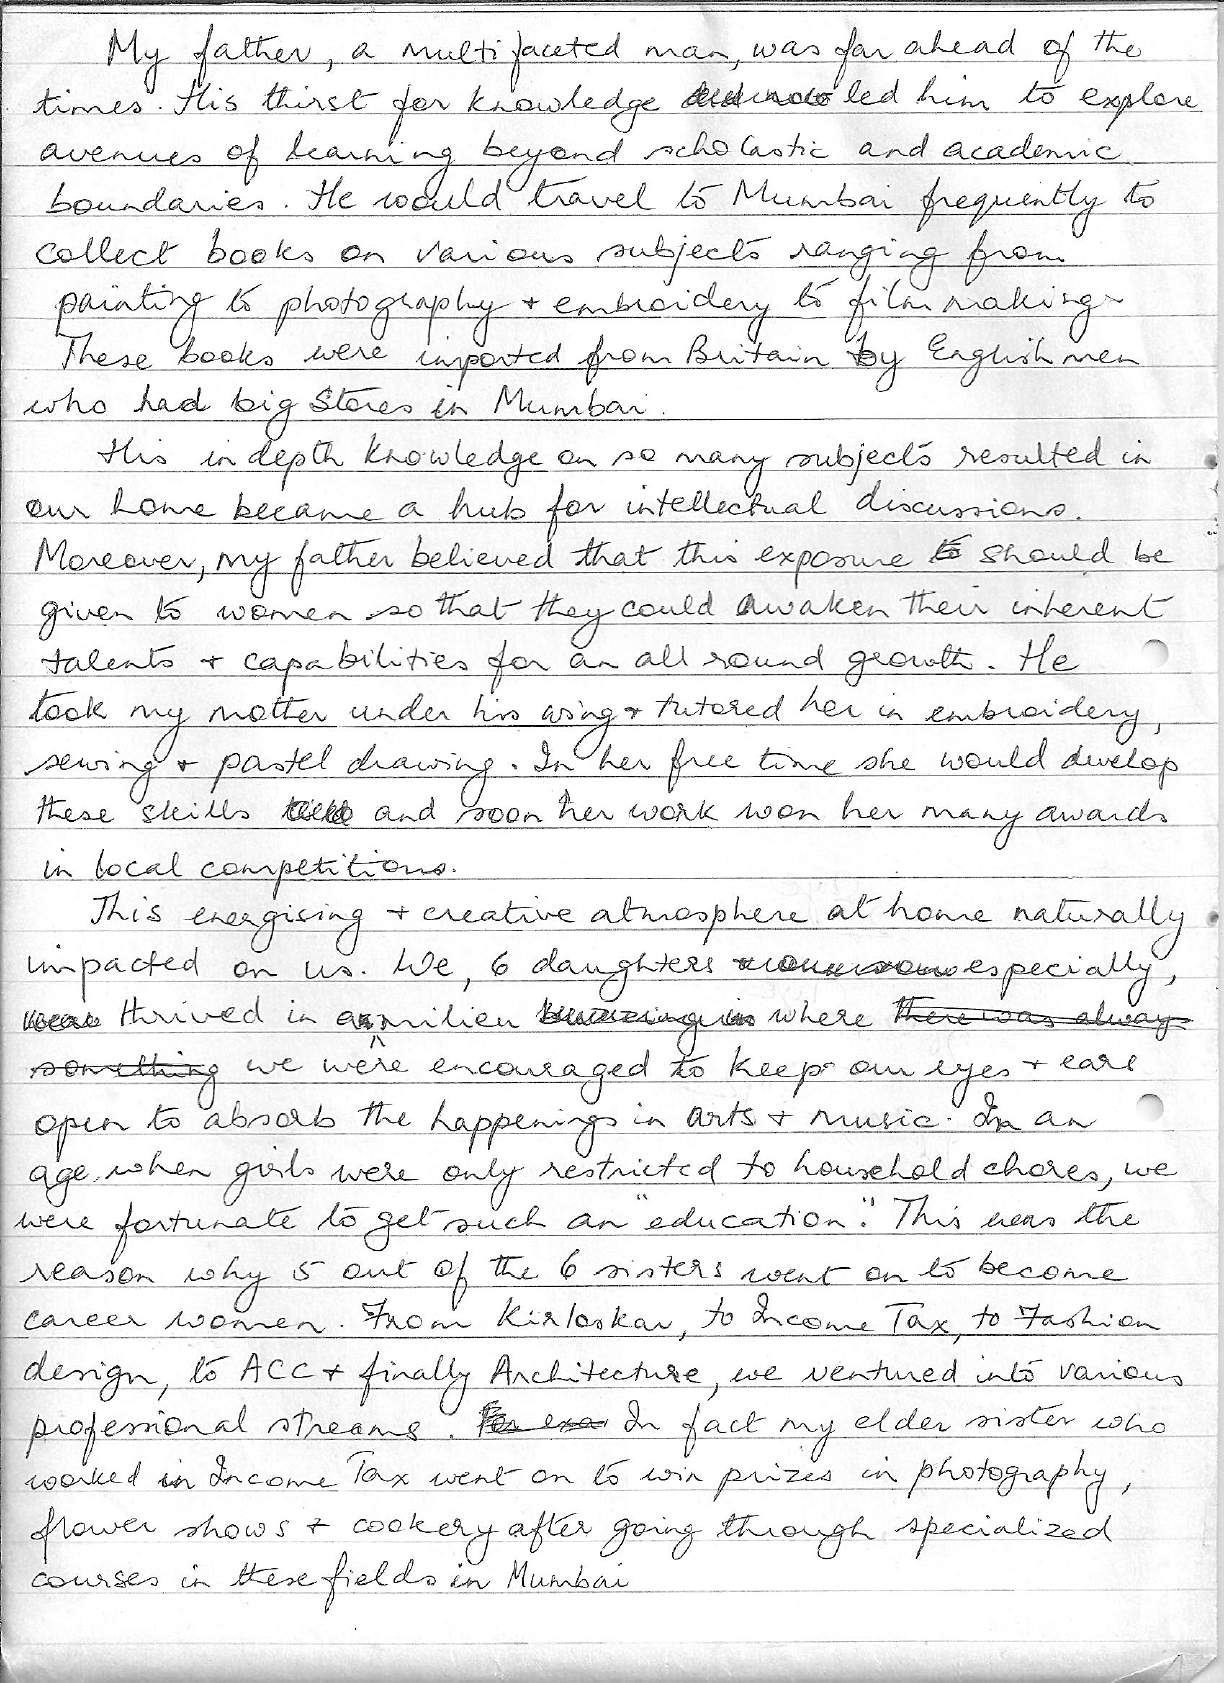 My father, a multifaceted man, was far ahead of the
times. His thirst for knowledge led him to explore
avenues of learning beyond scholastic and academic
boundaries. He would travel to Mumbai frequently to
collect books on various subjects ranging from
painting to photography + embroidery to film making.
These books were imported from Britain by Englishmen
who had big stores in Mumbai.
His indepth knowledge on so many subjects resulted in
our home became a hub for intellectual discussions.
Moreover, my father believed that this exposure to should be
given to women so that they could awaken their inherent
talents + capabilities for an all round growth. He
took my mother under his wing + tutored her in embroidery,
sewing + pastel drawing. In her free time she would develop
these skills and soon her work won her many awards
in local competitions.
This energising + creative atmosphere at home naturally
impacted on us. We, 6 daughters especially,
thrived in a milieu where there was always
something we were encouraged to keep our eyes + ears
open to absorb the happenings in arts + music. In an
age when girls were only restricted to household chores, we
were fortunate to get such an "education." This was the
reason why 5 out of the 6 sisters went on to become
career women. From Kirloskar, to Income Tax, to Fashion
design, to ACC + finally Architecture, we ventured into various
professional streams. For exa In fact my elder sister who
worked in Income Tax went on to win prizes in photography,
flower shows + cookery after going through specialized
courses in these fields in Mumbai